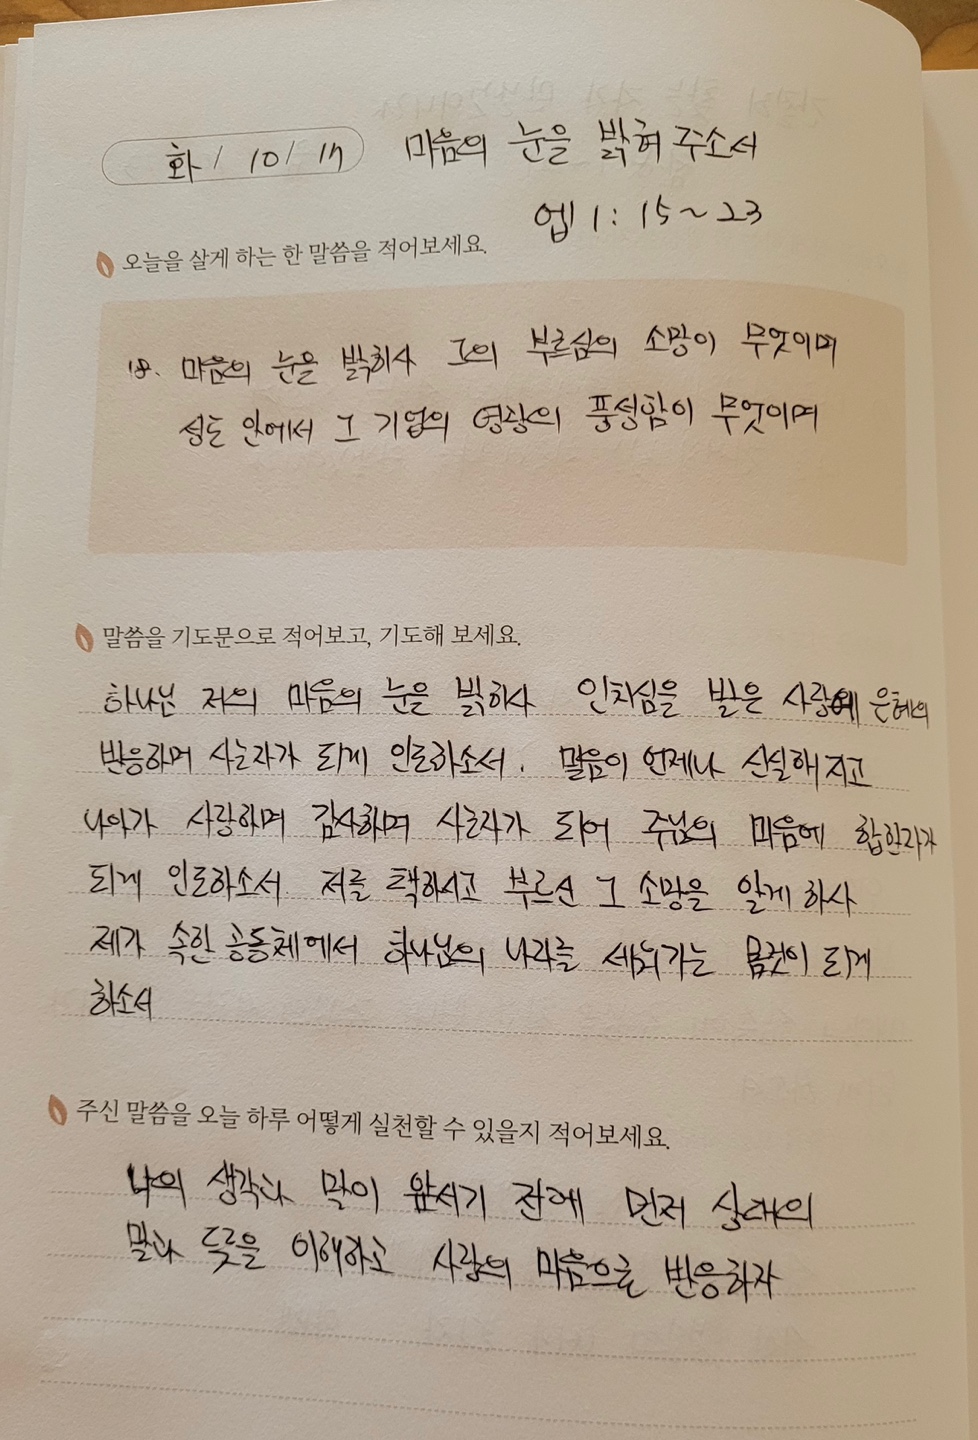 화 / 10 / 17 마음의 눈을 밝혀 주소서
엡 1 : 15 ~ 23
오늘을 살게 하는 한 말씀을 적어보세요.
18. 마음의 눈을 밝히사 그의 부르심의 소망이 무엇이며
성도 안에서 그 기업의 영광의 풍성함이 무엇이며
말씀을 기도문으로 적어보고, 기도해 보세요.
하나님 저의 마음의 눈을 밝히사 인치심을 받은 사랑에 은혜의
반응하며 사는자가 되게 인도하소서. 말씀이 언제나 신실해지고
나아가 사랑하며 감사하며 사는자가 되어 주님의 마음에 합한자가
되게 인도하소서 저를 택하시고 부르신 그 소망을 알게 하사
제가 속한 공동체에서 하나님의 나라를 세워가는 몸짓이 되게
하소서
주신 말씀을 오늘 하루 어떻게 실천할 수 있을지 적어보세요.
나의 생각과 말이 앞서기 전에 먼저 상대의
말과 뜻을 이해하고 사랑의 마음으로 반응하자